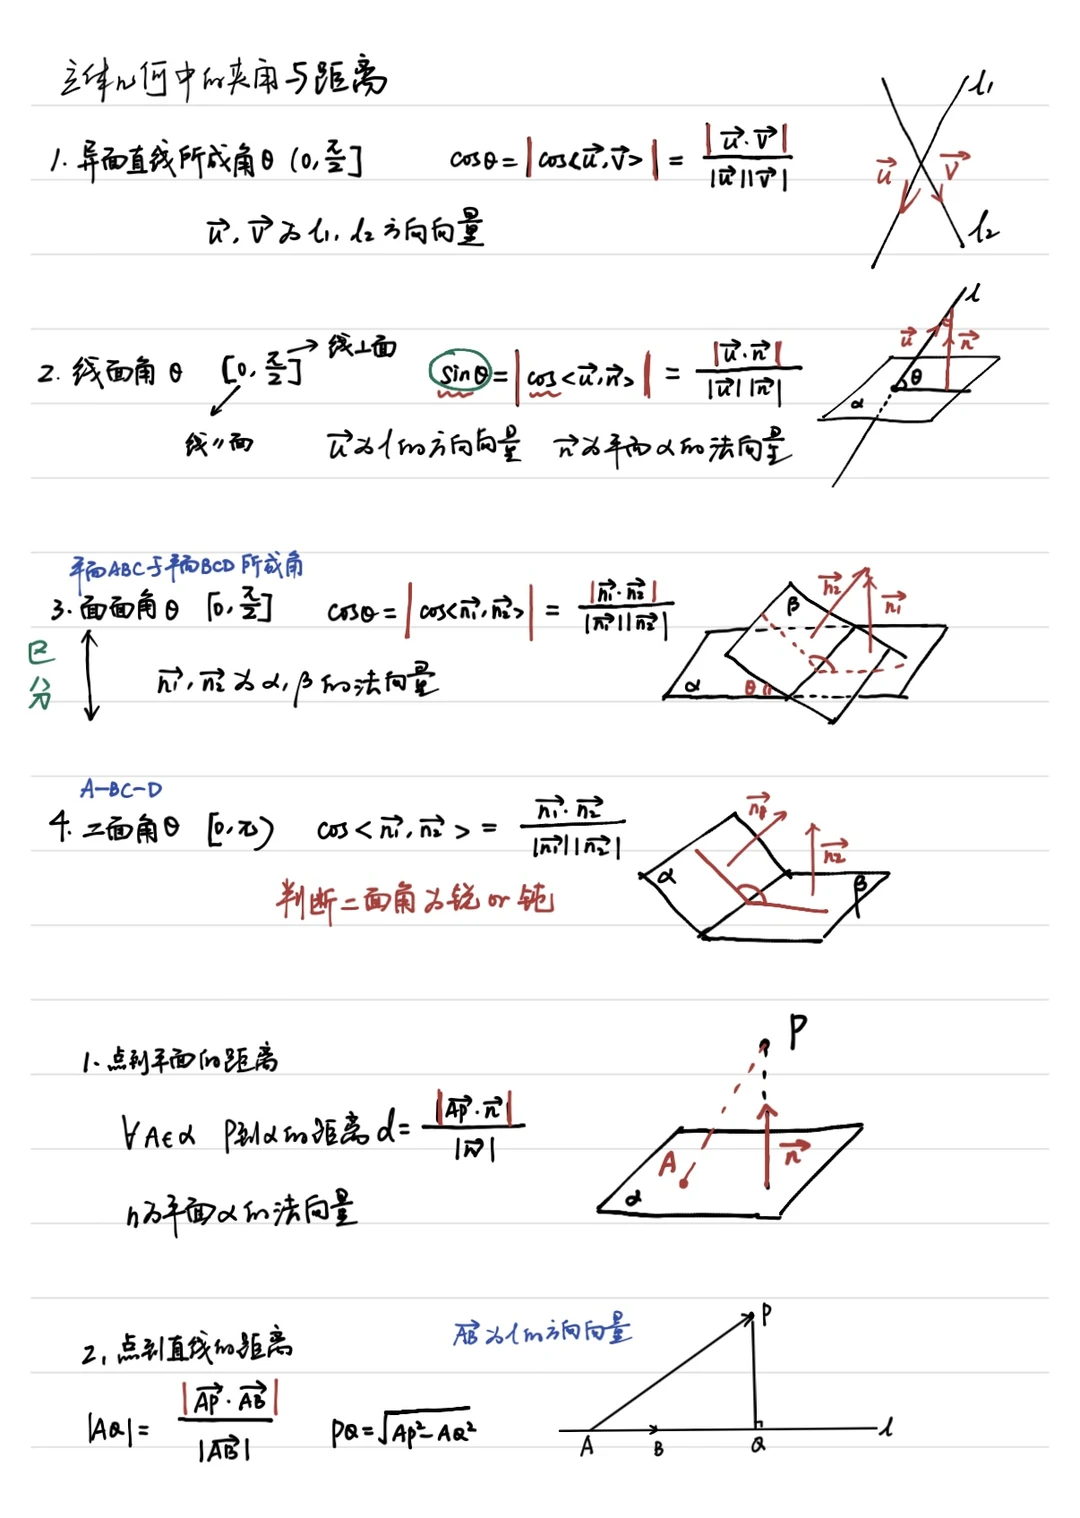 立体几何中的夹角与距离
1. 异面直线所成角θ (0, π/2]  cosθ = |cos<u⃗, v⃗>| = |u⃗·v⃗| / |u⃗||v⃗|
u⃗, v⃗ 为 l₁, l₂ 方向向量
l₁
u⃗ v⃗
l₂
2. 线面角 θ [0, π/2] → 线⊥面  sinθ = |cos<u⃗, n⃗>| = |u⃗·n⃗| / |u⃗||n⃗|
线∥面  u⃗为l的方向向量  n⃗为平面α的法向量
l
u⃗ n⃗
θ
α
平面ABC与平面BCD所成角
3. 面面角θ [0, π/2]  cosθ = |cos<n₁⃗, n₂⃗>| = |n₁⃗·n₂⃗| / |n₁⃗||n₂⃗|
区分
n₁⃗, n₂⃗ 为α, β的法向量
n₂⃗ n₁⃗
β
α θ
A-BC-D
4. 二面角θ [0, π)  cos<n₁⃗, n₂⃗> = n₁⃗·n₂⃗ / |n₁⃗||n₂⃗|
判断二面角为锐or钝
n₁⃗ n₂⃗
α β
1. 点到平面的距离
∀A∈α P到α的距离 d = |AP⃗·n⃗| / |n⃗|
n为平面α的法向量
P
A n⃗
α
2, 点到直线的距离
AB⃗为l的方向向量
|AQ| = |AP⃗·AB⃗| / |AB⃗|  PQ = √(AP²-AQ²)
P
A B Q l